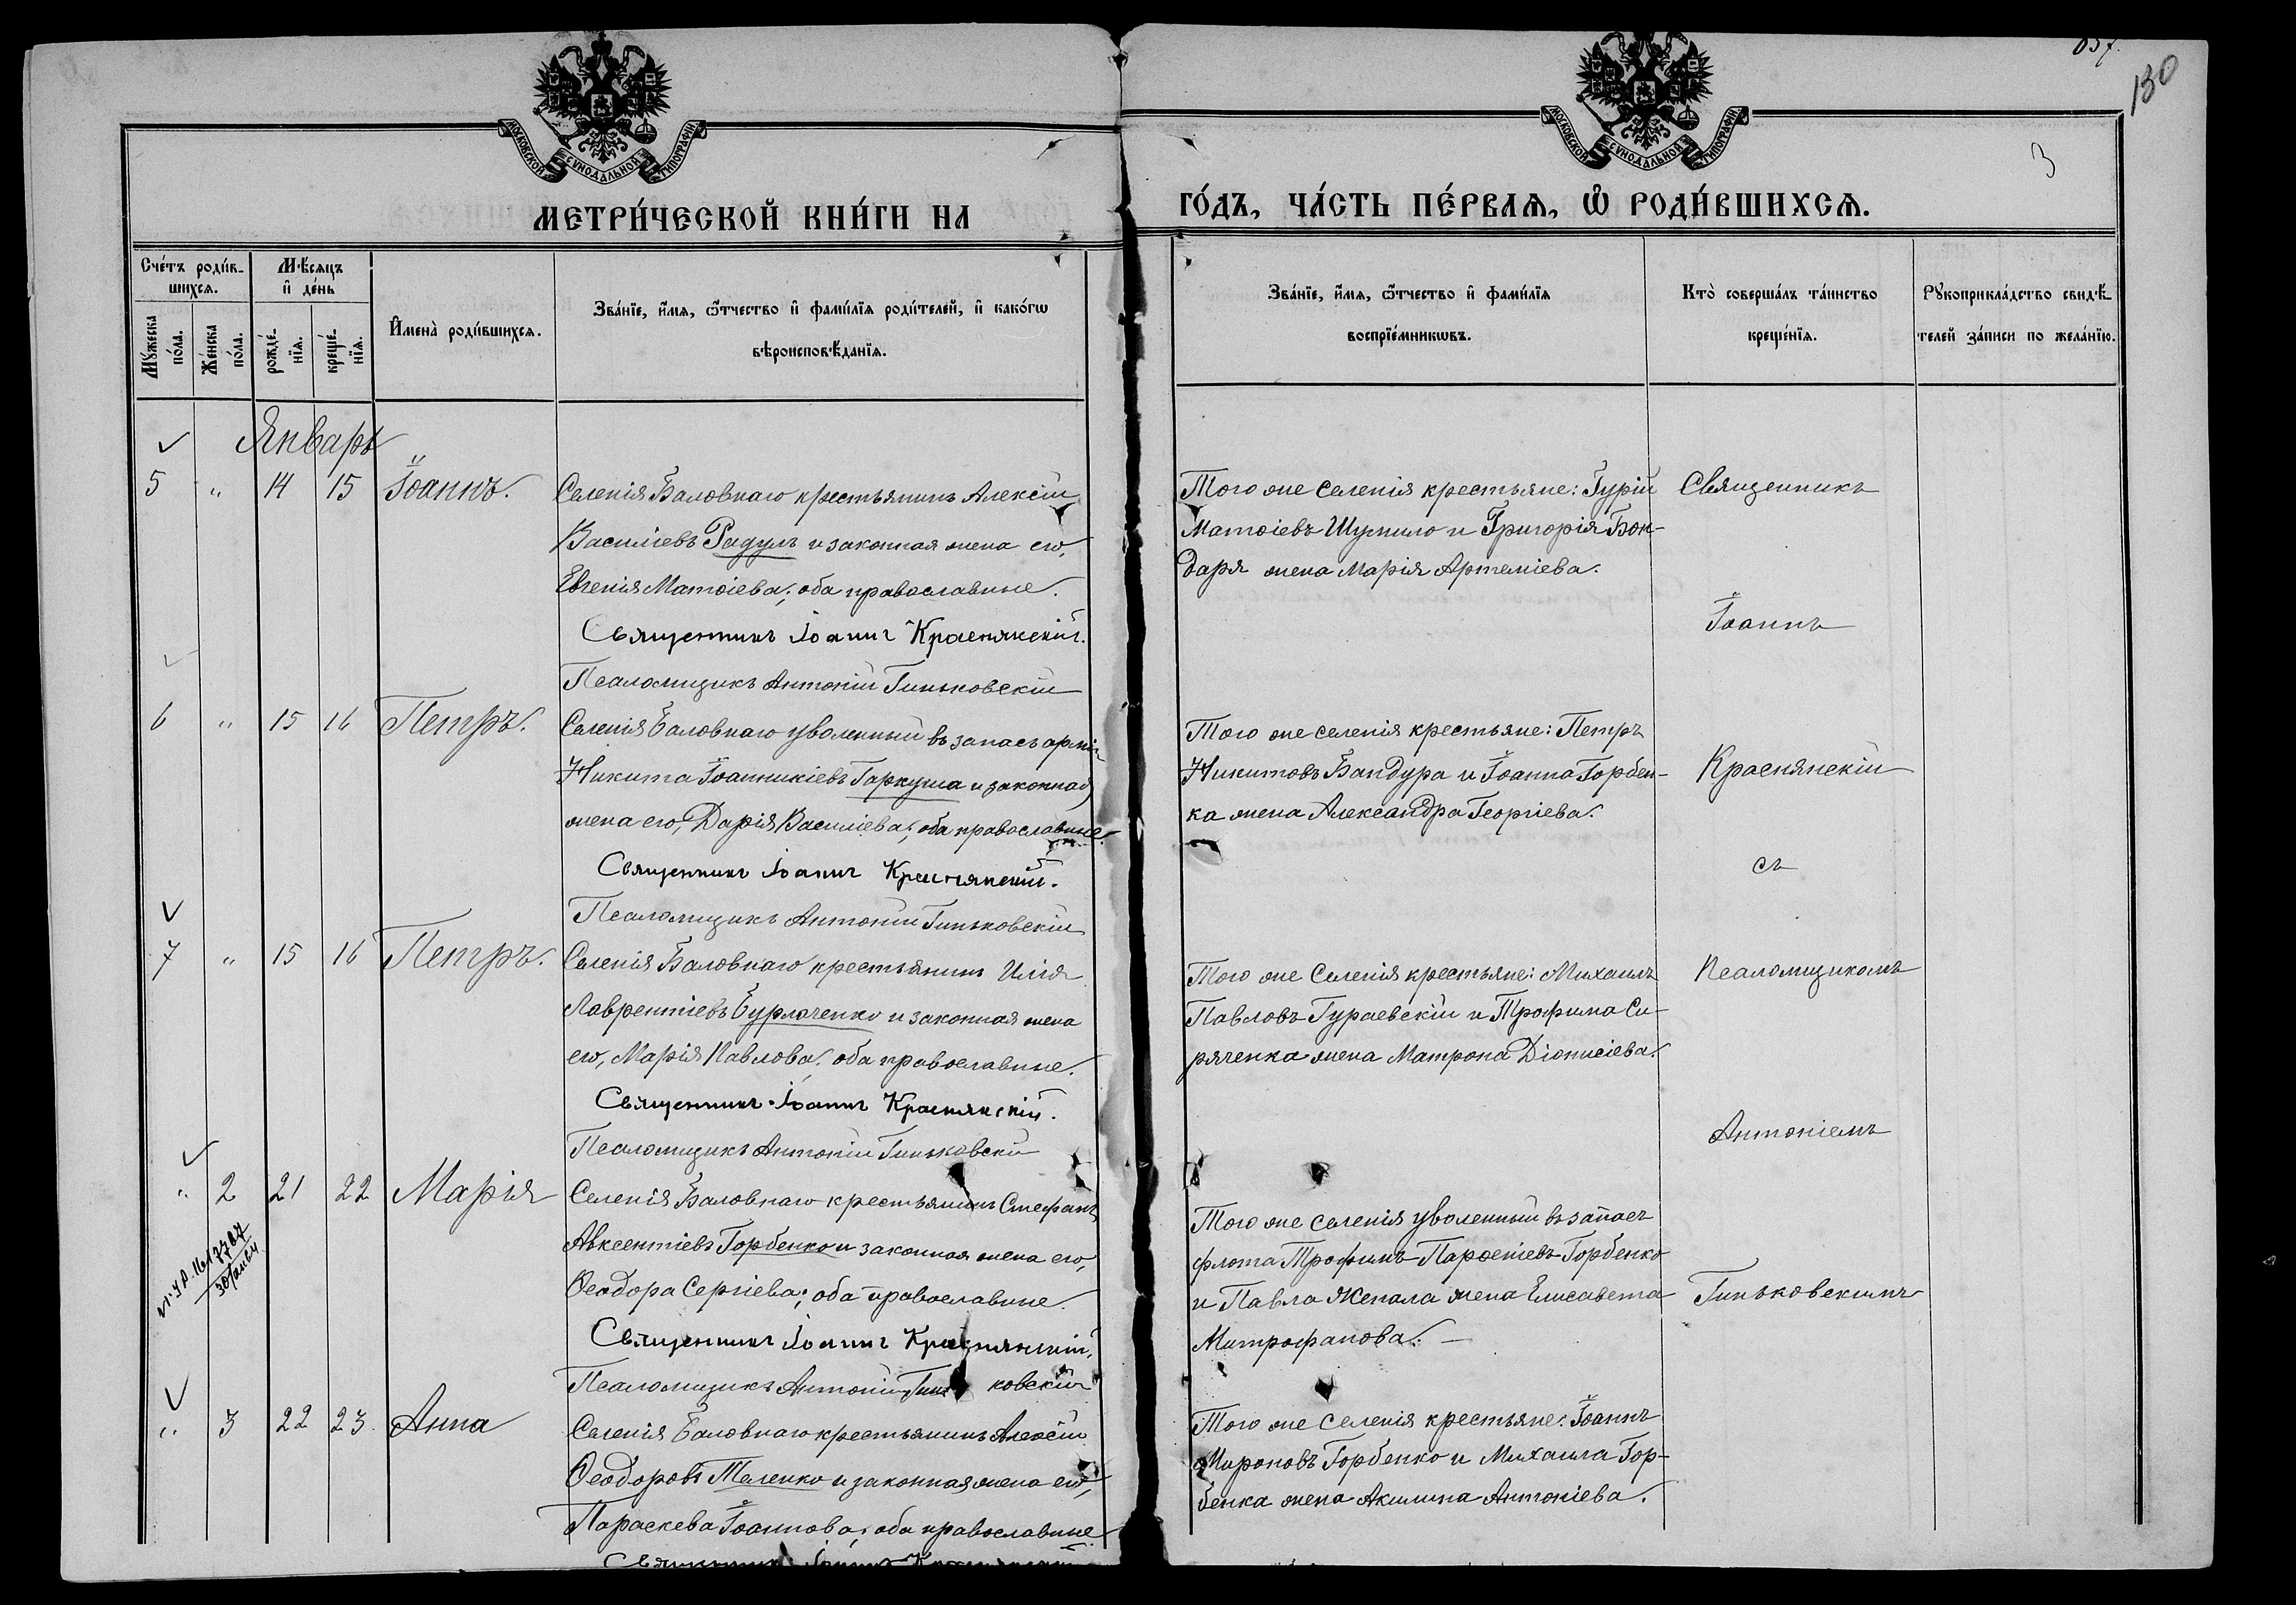 057.
130
3
МОСКОВСКОЙ СѴНОДАЛЬНОЙ ТИПОГРАФІИ
МОСКОВСКОЙ СѴНОДАЛЬНОЙ ТИПОГРАФІИ
МЕТРИ́ЧЕСКОЙ КНИ́ГИ НА
ГО́ДЪ, ЧА́СТЬ ПЕ́РВАѦ, Ѿ РОДИ́ВШИХСѦ.
Сче́тъ роди́в-
шихсѧ.
Мѣ́сѧцъ
и҆ де́нь
Мꙋ́жеска
по́ла.
Же́нска
по́ла.
рожде́-
нїѧ.
креще́-
нїѧ.
И҆мена̀ роди́вшихсѧ.
Зва́нїе, и҆́мѧ, ѻ҆́тчество и҆ фамѝлїѧ роди́телей, и҆ како́гѡ
вѣроисповѣ́данїѧ.
Зва́нїе, и҆́мѧ, ѻ҆́тчество и҆ фами́лїѧ
воспрїе́мникѡвъ.
Кто̀ соверша́лъ та́инство
креще́нїѧ.
Рꙋкоприкла́дство свидѣ́-
телей за́писи по жела́нїю.
Январь
5 " 14 15 Іоаннъ.
Селенія Баловнаго крестьянинъ Алексій
Василіевъ Радулъ и законная жена его,
Евгенія Матѳіева; оба православные.
Священникъ Іоаннъ Краснянскій.
Псаломщикъ Антоній Гиньковскій
Того же селенія крестьяне: Гурій
Матѳіевъ Шумило и Григорія Бон-
даря жена Марія Артеміева.
Священникъ
Іоаннъ
6 " 15 16 Петръ.
Селенія Баловнаго уволенный въ запасъ арміи
Никита Іоанникіевъ Гаркуша и законная
жена его, Дарія Василіева; оба православные.
Священникъ Іоаннъ Краснянскій.
Псаломщикъ Антоній Гиньковскій
Того же селенія крестьяне: Петръ
Никитовъ Бандура и Іоанна Горбен-
ка жена Александра Георгіева.
Краснянскій
съ
7 " 15 16 Петръ.
Селенія Баловнаго крестьянинъ Илія
Лаврентіевъ Бурлаченко и законная жена
его, Марія Павлова; оба православные.
Священникъ Іоаннъ Краснянскій.
Псаломщикъ Антоній Гиньковскій
Того же селенія крестьяне: Михаилъ
Павловъ Гураевскій и Трофима Си-
ряченка жена Матрона Діонисіева.
Псаломщикомъ
Антоніемъ
" 2 21 22 Марія
Селенія Баловнаго крестьянинъ Стефанъ
Авксентіевъ Горбенко и законная жена его,
Ѳеодора Сергіева; оба православные.
Священникъ Іоаннъ Краснянскій.
Псаломщикъ Антоній Гиньковскій
Того же селенія уволенный въ запасъ
флота Трофимъ Парѳеніевъ Горбенко
и Павла Жепала жена Елисавета
Митрофанова.
Гиньковскимъ
" 3 22 23. Анна
Селенія Баловнаго крестьянинъ Алексій
Ѳеодоровъ Таленко и законная жена его,
Параскева Іоаннова; оба православные
Священникъ Іоаннъ
Того же селенія крестьяне: Іоаннъ
Мироновъ Горбенко и Михаила Гор-
бенка жена Акилина Антоніева.